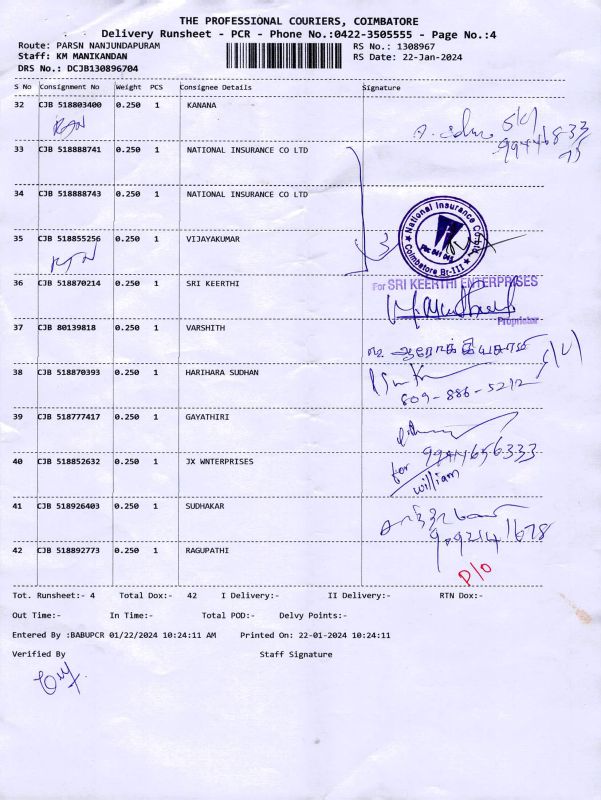 THE PROFESSIONAL COURIERS, COIMBATORE
Delivery Runsheet - PCR - Phone No.:0422-3505555 - Page No.:4
Route: PARSN NANJUNDAPURAM RS No.: 1308967
Staff: KM MANIKANDAN RS Date: 22-Jan-2024
DRS No.: DCJB130896704
S No Consignment No Weight PCS Consignee Details Signature
32 CJB 518803400 0.250 1 KANANA
33 CJB 518888741 0.250 1 NATIONAL INSURANCE CO LTD
34 CJB 518888743 0.250 1 NATIONAL INSURANCE CO LTD
National Insurance Co. Ltd
Coimbatore Br-III
35 CJB 518855256 0.250 1 VIJAYAKUMAR
36 CJB 518870214 0.250 1 SRI KEERTHI
For SRI KEERTHI ENTERPRISES
Proprietor
37 CJB 80139818 0.250 1 VARSHITH
38 CJB 518870393 0.250 1 HARIHARA SUDHAN
809-886-5212
39 CJB 518777417 0.250 1 GAYATHIRI
9944656333
40 CJB 518852632 0.250 1 JX WNTERPRISES
for william
41 CJB 518926403 0.250 1 SUDHAKAR
42 CJB 518892773 0.250 1 RAGUPATHI
P/O
Tot. Runsheet:- 4 Total Dox:- 42 I Delivery:- II Delivery:- RTN Dox:-
Out Time:- In Time:- Total POD:- Delvy Points:-
Entered By :BABUPCR 01/22/2024 10:24:11 AM Printed On: 22-01-2024 10:24:11
Verified By Staff Signature